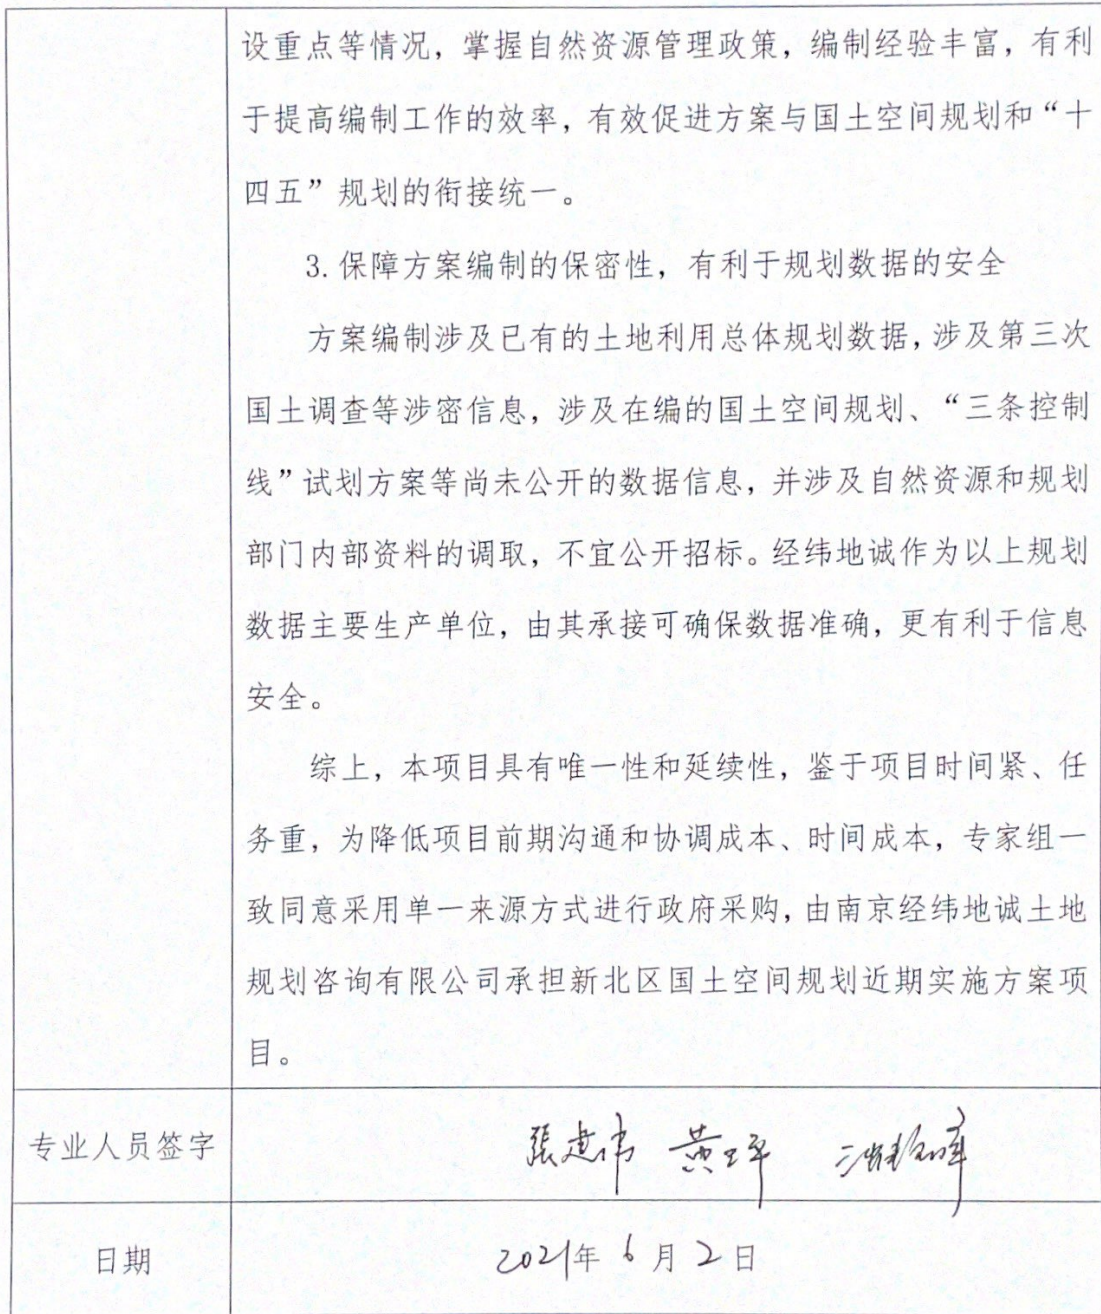 设重点等情况，掌握自然资源管理政策，编制经验丰富，有利
于提高编制工作的效率，有效促进方案与国土空间规划和“十
四五”规划的衔接统一。
3. 保障方案编制的保密性，有利于规划数据的安全
方案编制涉及已有的土地利用总体规划数据，涉及第三次
国土调查等涉密信息，涉及在编的国土空间规划、“三条控制
线”试划方案等尚未公开的数据信息，并涉及自然资源和规划
部门内部资料的调取，不宜公开招标。经纬地诚作为以上规划
数据主要生产单位，由其承接可确保数据准确，更有利于信息
安全。
综上，本项目具有唯一性和延续性，鉴于项目时间紧、任
务重，为降低项目前期沟通和协调成本、时间成本，专家组一
致同意采用单一来源方式进行政府采购，由南京经纬地诚土地
规划咨询有限公司承担新北区国土空间规划近期实施方案项
目。
专业人员签字 張建伟
日期 2021年 6 月 2 日